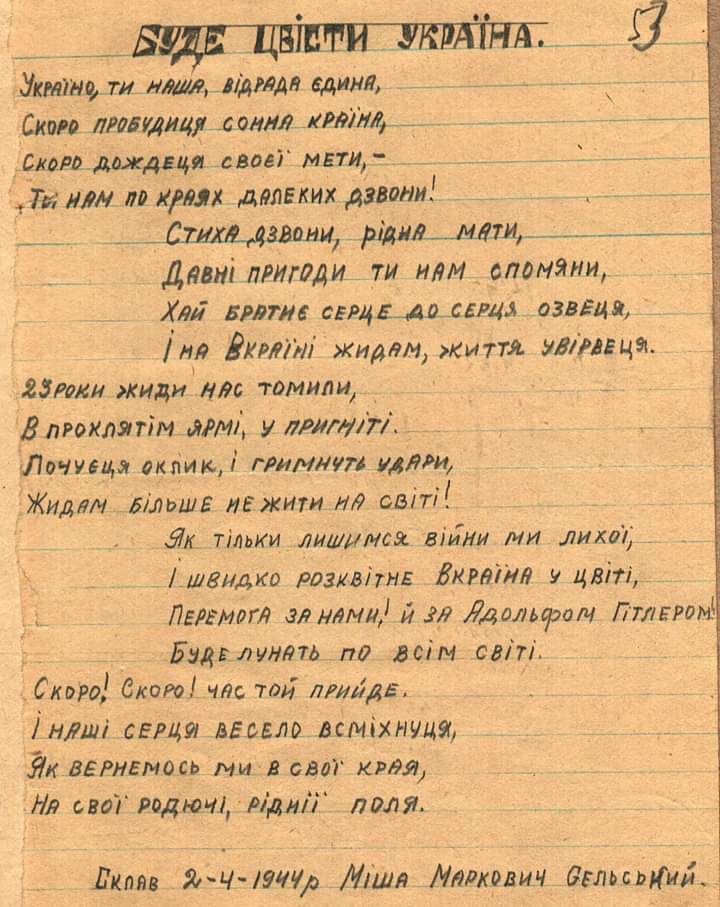 53
БУДЕ ЦВІСТИ УКРАЇНА.
Україно, ти наша, відрада єдина,
Скоро пробудиця сонна країна,
Скоро дождеця своєї мети,-
Ти нам по краях далеких дзвони!
Стиха дзвони, рідна мати,
Давні пригоди ти нам спомяни,
Хай братнє серце до серця озвеця,
І на Вкраїні жидам, життя увірвеця.
23 роки жиди нас томили,
В проклятім ярмі, у пригніті.
Почуєця оклик, і гримнуть удари,
Жидам більше не жити на світі!
Як тільки лишимся війни ми лихої,
І швидко розквітне Вкраїна у цвіті,
Перемога за нами! й за Адольфом Гітлером!
Буде лунать по всім світі.
Скоро! Скоро! час той прийде.
І наші серця весело всміхнуця,
Як вернемось ми в свої края,
На свої родючі, ріднії поля.
Склав 2-4-1944р Міша Маркович Сельський.